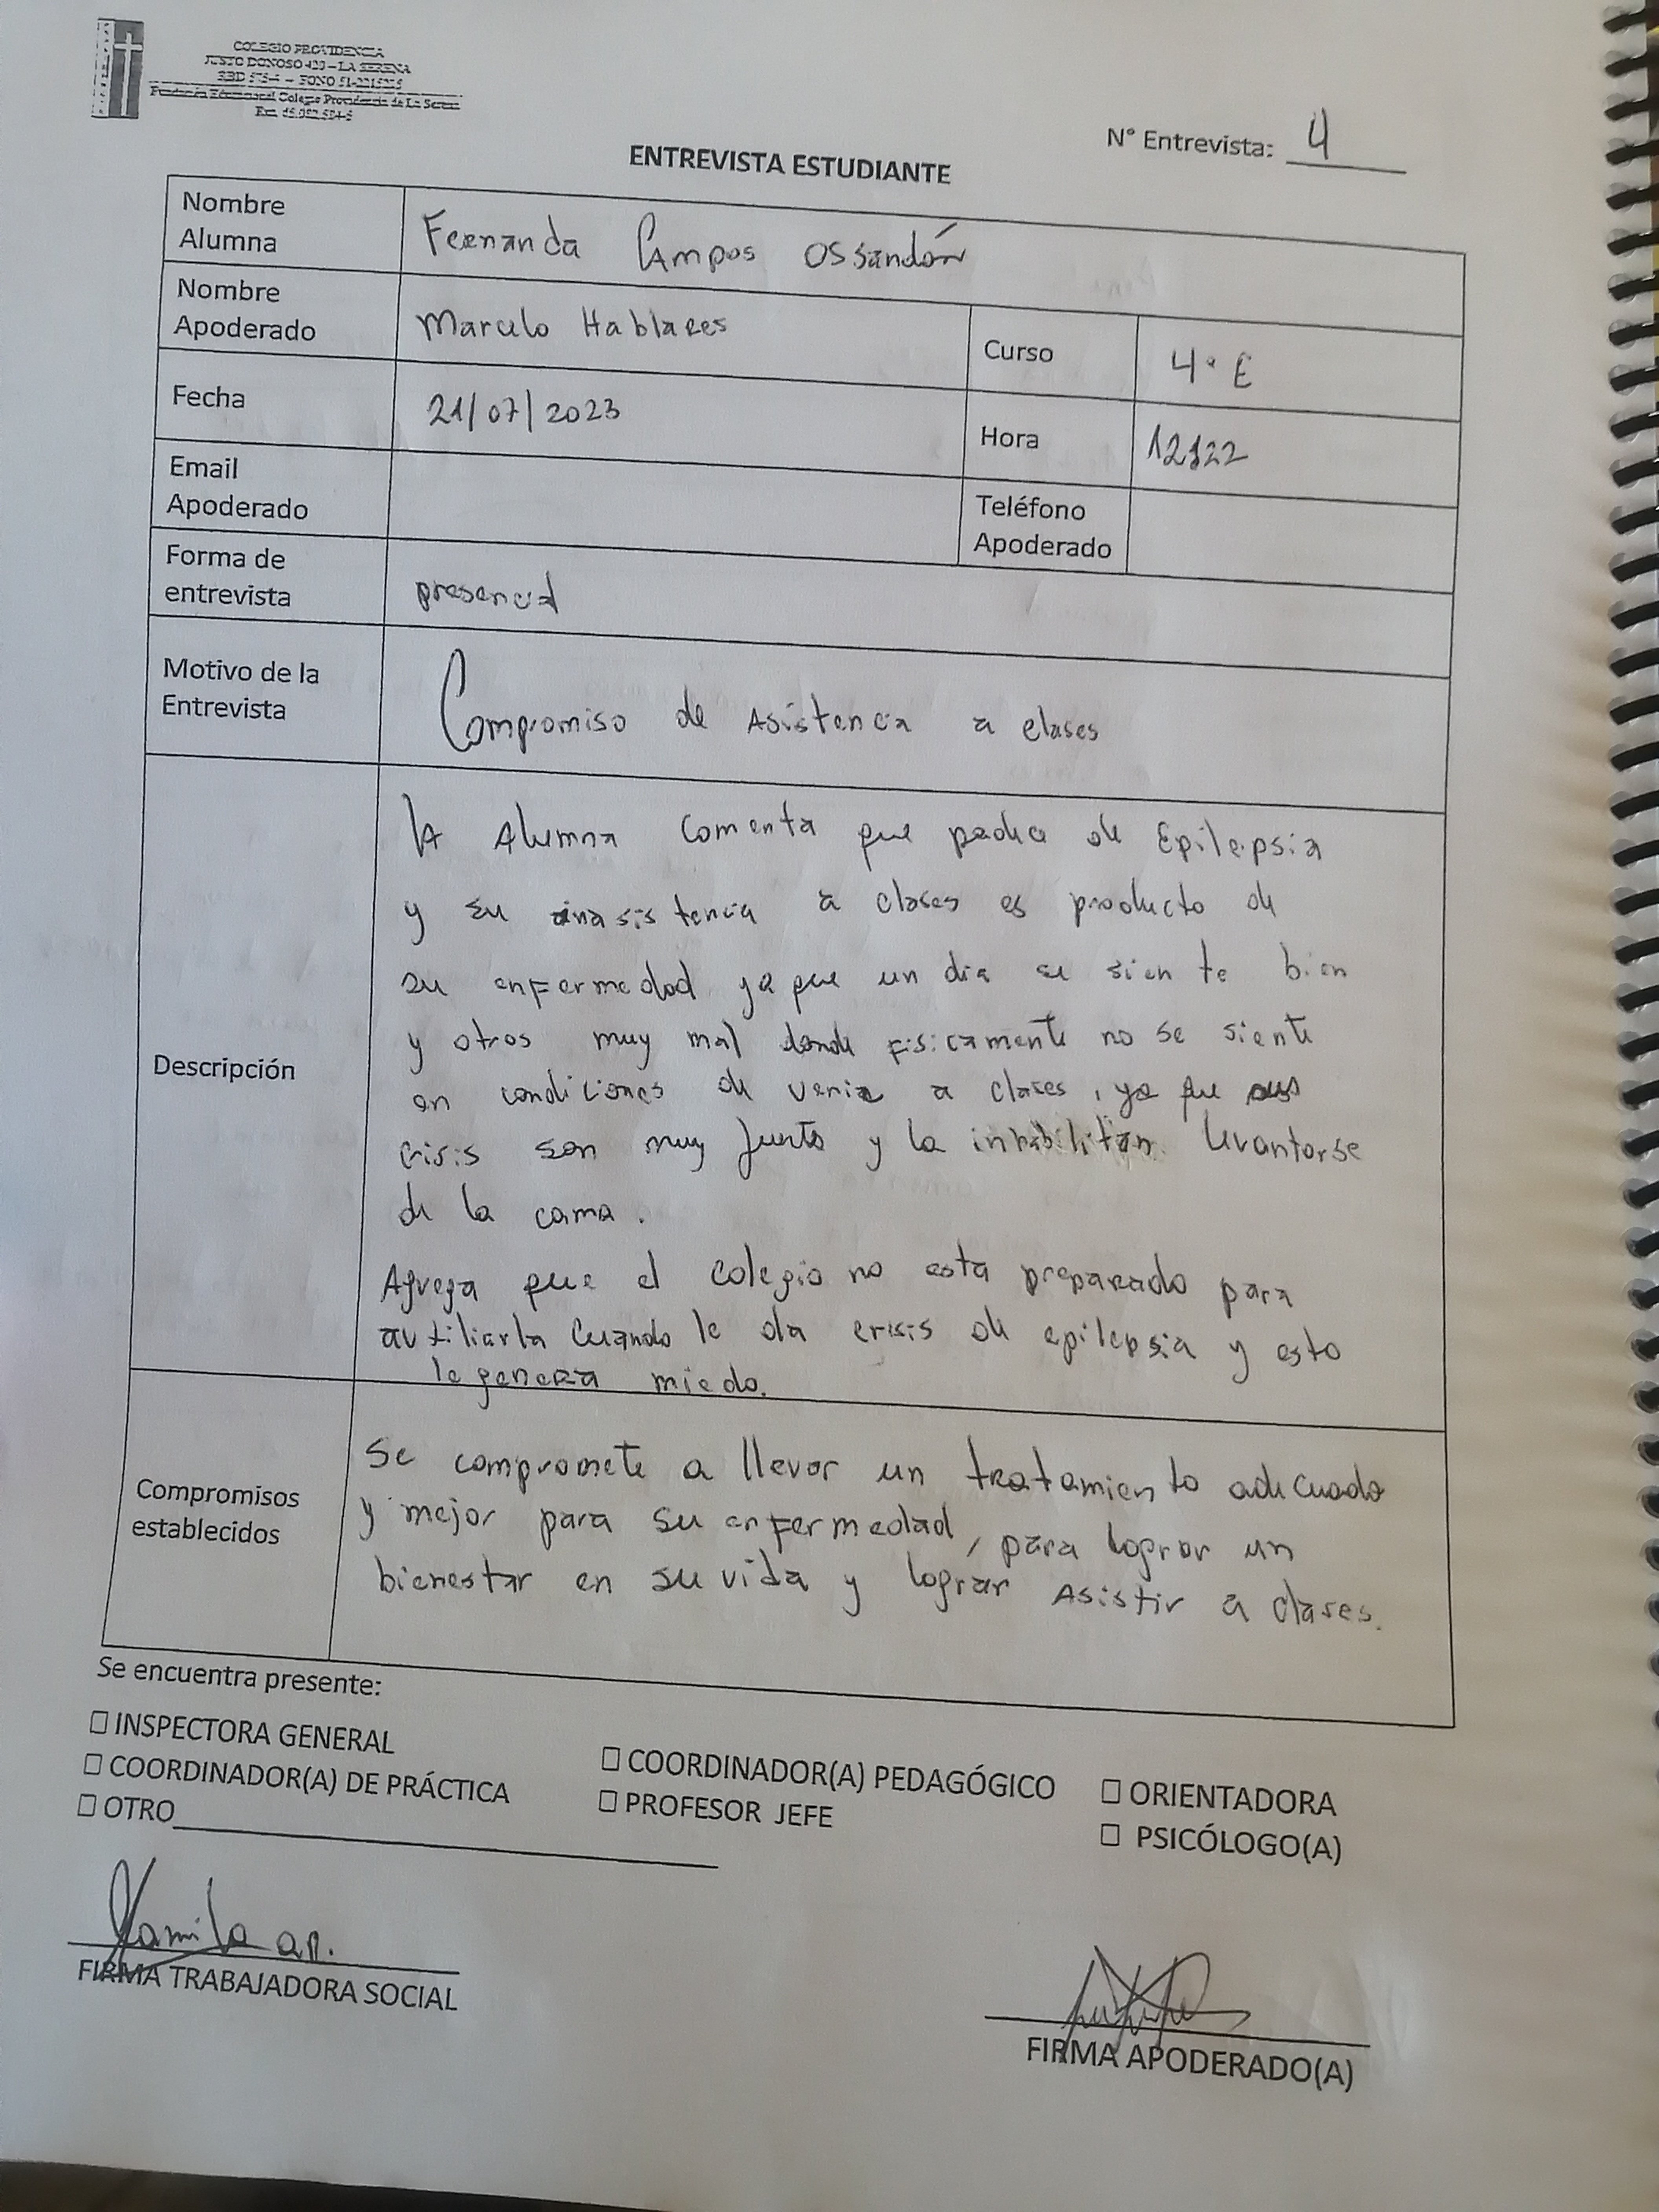 COLEGIO PROVIDENCIA
JUSTO DONOSO 420 – LA SERENA
RBD 575-4 – FONO 51-2215225
Fundación Educacional Colegio Providencia de La Serena
N° Entrevista: 4
ENTREVISTA ESTUDIANTE
Nombre Alumna
Fernanda Campos Ossandón
Nombre Apoderado
Marcelo Hablares
Curso
4° E
Fecha
21/07/2023
Hora
12:22
Email Apoderado
Teléfono Apoderado
Forma de entrevista
presencial
Motivo de la Entrevista
Compromiso de Asistencia a clases
Descripción
La Alumna comenta que padece de Epilepsia
y su inasistencia a clases es producto de
su enfermedad ya que un dia se siente bien
y otros muy mal donde fisicamente no se siente
en condiciones de venir a clases, ya que sus
crisis son muy fuerte y la inhabilitan levantarse
de la cama.
Agrega que el colegio no esta preparado para
auxiliarla cuando le da crisis de epilepsia y esto
le genera miedo.
Compromisos establecidos
Se compromete a llevar un tratamiento adecuado
y mejor para su enfermedad, para lograr un
bienestar en su vida y lograr Asistir a clases.
Se encuentra presente:
☐ INSPECTORA GENERAL
☐ COORDINADOR(A) PEDAGÓGICO
☐ ORIENTADORA
☐ COORDINADOR(A) DE PRÁCTICA
☐ PROFESOR JEFE
☐ PSICÓLOGO(A)
☐ OTRO
Kamila ap.
FIRMA TRABAJADORA SOCIAL
FIRMA APODERADO(A)